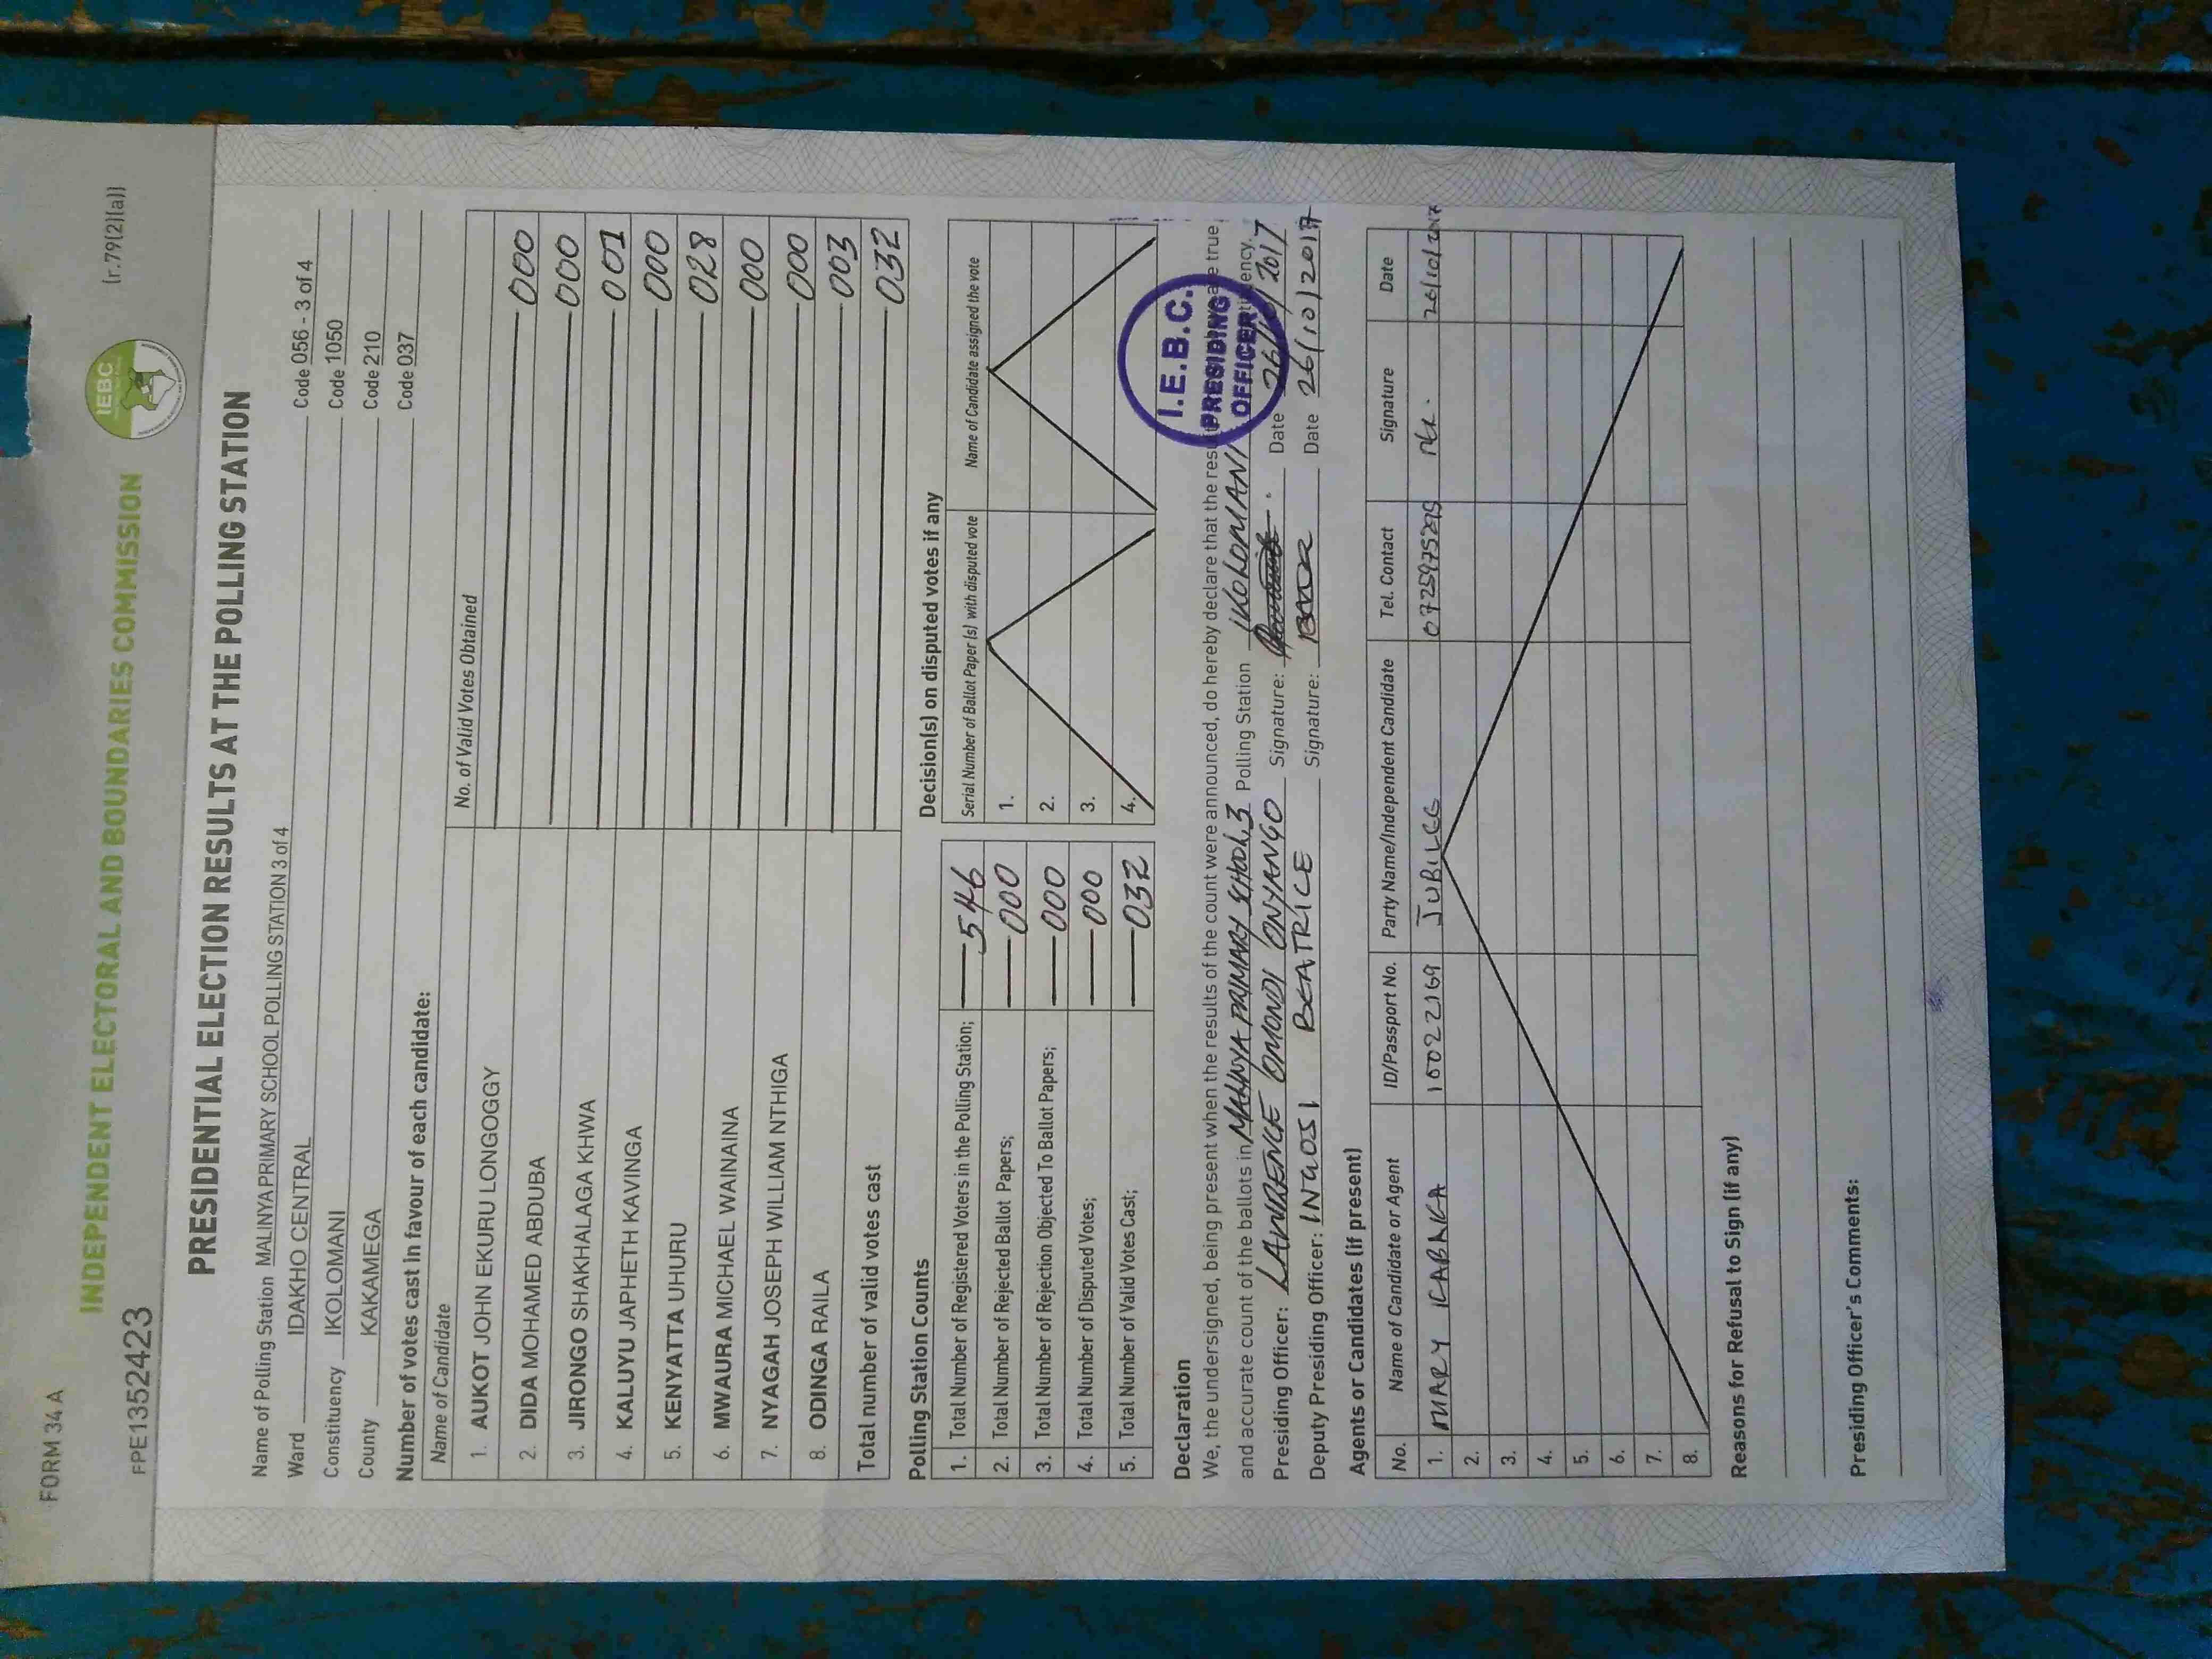 FORM 34 A
INDEPENDENT ELECTORAL AND BOUNDARIES COMMISSION
IEBC
(r.79(2)(a))
FPE1352423
PRESIDENTIAL ELECTION RESULTS AT THE POLLING STATION
Name of Polling Station MALINYA PRIMARY SCHOOL POLLING STATION 3 of 4 Code 056 - 3 of 4
Ward IDAKHO CENTRAL Code 1050
Constituency IKOLOMANI Code 210
County KAKAMEGA Code 037
Number of votes cast in favour of each candidate:
Name of Candidate No. of Valid Votes Obtained
1. AUKOT JOHN EKURU LONGOGGY 000
2. DIDA MOHAMED ABDUBA 000
3. JIRONGO SHAKHALAGA KHWA 001
4. KALUYU JAPHETH KAVINGA 000
5. KENYATTA UHURU 028
6. MWAURA MICHAEL WAINAINA 000
7. NYAGAH JOSEPH WILLIAM NTHIGA 000
8. ODINGA RAILA 003
Total number of valid votes cast 032
Polling Station Counts
1. Total Number of Registered Voters in the Polling Station; 546
2. Total Number of Rejected Ballot Papers; 000
3. Total Number of Rejection Objected To Ballot Papers; 000
4. Total Number of Disputed Votes; 000
5. Total Number of Valid Votes Cast; 032
Decision(s) on disputed votes if any
Serial Number of Ballot Paper (s) with disputed vote Name of Candidate assigned the vote
1.
2.
3.
4.
Declaration
We, the undersigned, being present when the results of the count were announced, do hereby declare that the results are true
and accurate count of the ballots in MALINYA PRIMARY SCHOOL 3 Polling Station IKOLOMANI
Presiding Officer: LAWRENCE OMONDI ONYANGO Signature: Date 26/10/2017
Deputy Presiding Officer: INGOSI BEATRICE Signature: Date 26/10/2017
I.E.B.C.
PRESIDING
OFFICER
Agents or Candidates (if present)
No. Name of Candidate or Agent ID/Passport No. Party Name/Independent Candidate Tel. Contact Signature Date
1. MARY 10022169 JUBILEE 0725975295 26/10/2017
2.
3.
4.
5.
6.
7.
8.
Reasons for Refusal to Sign (if any)
Presiding Officer's Comments: